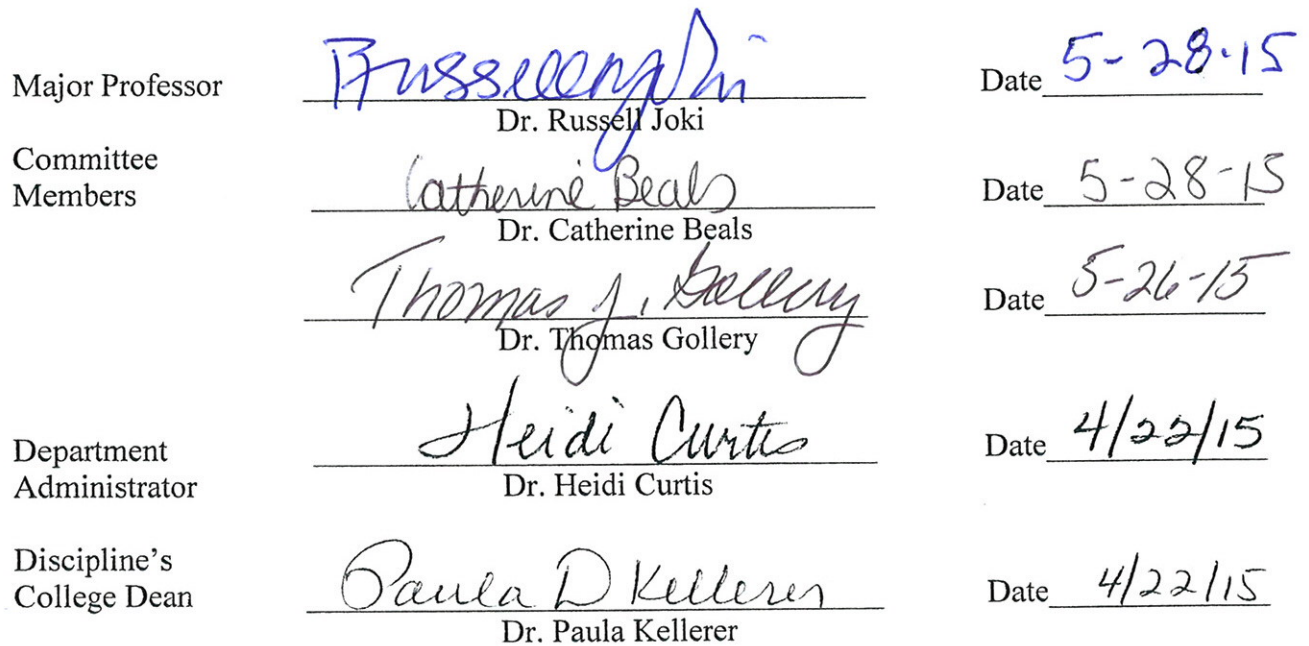 Major Professor Russell Joki Date 5-28-15
Dr. Russell Joki
Committee
Members Catherine Beals Date 5-28-15
Dr. Catherine Beals
Thomas J. Gollery Date 5-26-15
Dr. Thomas Gollery
Department Heidi Curtis Date 4/22/15
Administrator
Dr. Heidi Curtis
Discipline's
College Dean Paula D Kellerer Date 4/22/15
Dr. Paula Kellerer